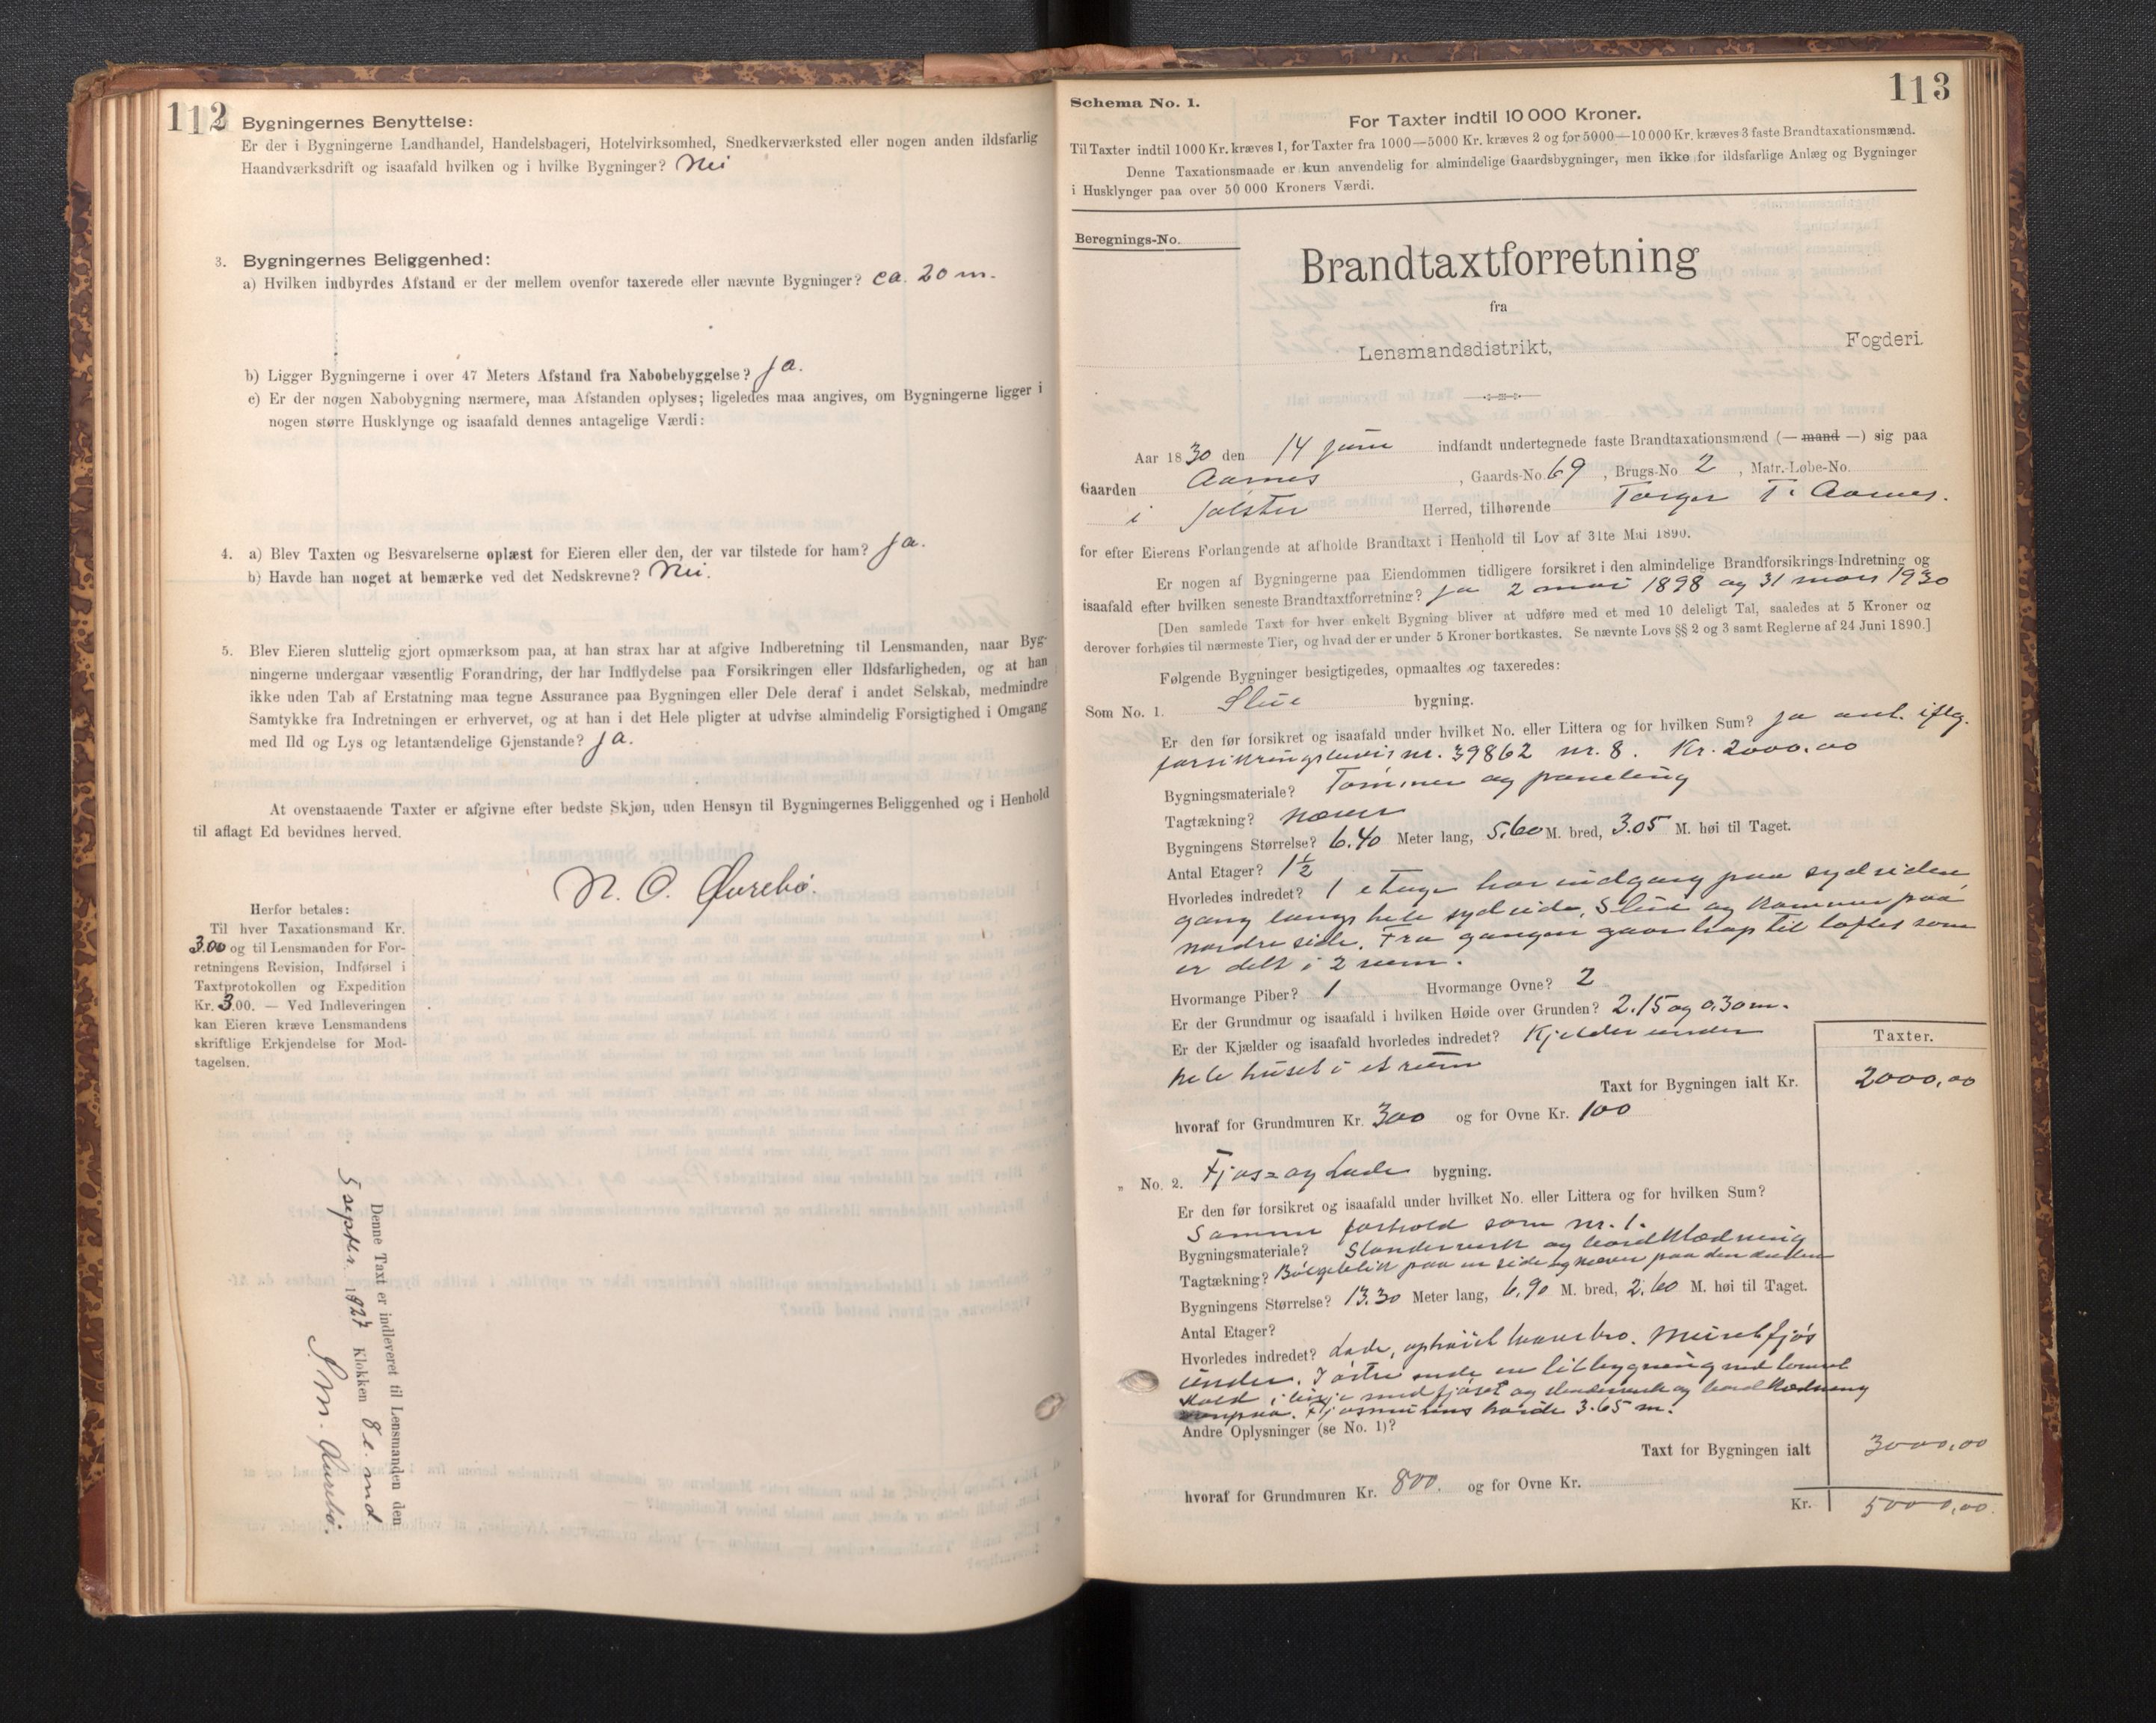 112
Bygningernes Benyttelse:
Er der i Bygningerne Landhandel, Handelsbageri, Hotelvirksomhed, Snedkerværksted eller nogen anden ildsfarlig
Haandværksdrift og isaafald hvilken og i hvilke Bygninger? Nei
3. Bygningernes Beliggenhed:
a) Hvilken indbyrdes Afstand er der mellem ovenfor taxerede eller nævnte Bygninger? ca. 20 m.
b) Ligger Bygningerne i over 47 Meters Afstand fra Nabobebyggelse? Ja.
c) Er der nogen Nabobygning nærmere, maa Afstanden oplyses; ligeledes maa angives, om Bygningerne ligger i
nogen større Husklynge og isaafald dennes antagelige Værdi:
4. a) Blev Taxten og Besvarelserne oplæst for Eieren eller den, der var tilstede for ham? Ja.
b) Havde han noget at bemærke ved det Nedskrevne? Nei.
5. Blev Eieren sluttelig gjort opmærksom paa, at han strax har at afgive Indberetning til Lensmanden, naar Byg-
ningerne undergaar væsentlig Forandring, der har Indflydelse paa Forsikringen eller Ildsfarligheden, og at han
ikke uden Tab af Erstatning maa tegne Assurance paa Bygningen eller Dele deraf i andet Selskab, medmindre
Samtykke fra Indretningen er erhvervet, og at han i det Hele pligter at udvise almindelig Forsigtighed i Omgang
med Ild og Lys og letantændelige Gjenstande? Ja.
At ovenstaaende Taxter er afgivne efter bedste Skjøn, uden Hensyn til Bygningernes Beliggenhed og i Henhold
til aflagt Ed bevidnes herved.
N. O. Aurebø.
Herfor betales:
Til hver Taxationsmand Kr.
3.00 og til Lensmanden for For-
retningens Revision, Indførsel i
Taxtprotokollen og Expedition
Kr. 3.00. — Ved Indleveringen
kan Eieren kræve Lensmandens
skriftlige Erkjendelse for Mod-
tagelsen.
Denne Taxt er indleveret til Lensmanden den
5 septbr. 1927 Klokken 8 e. md.
Aurebø.
113
Schema No. 1.
For Taxter indtil 10 000 Kroner.
Til Taxter indtil 1000 Kr. kræves 1, for Taxter fra 1000—5000 Kr. kræves 2 og for 5000—10 000 Kr. kræves 3 faste Brandtaxationsmænd.
Denne Taxationsmaade er kun anvendelig for almindelige Gaardsbygninger, men ikke for ildsfarlige Anlæg og Bygninger
i Husklynger paa over 50 000 Kroners Værdi.
Beregnings-No.
Brandtaxtforretning
fra
Lensmandsdistrikt, Fogderi.
Aar 1830 den 14 juni indfandt undertegnede faste Brandtaxationsmænd (— mand —) sig paa
Gaarden Aarnes, Gaards-No. 69, Brugs-No 2, Matr.-Løbe-No.
i Jølster Herred, tilhørende Torger T. Aarnes.
for efter Eierens Forlangende at afholde Brandtaxt i Henhold til Lov af 31te Mai 1890.
Er nogen af Bygningerne paa Eiendommen tidligere forsikret i den almindelige Brandforsikrings-Indretning og
isaafald efter hvilken seneste Brandtaxtforretning? Ja 2 mai 1898 og 31 mars 1930
[Den samlede Taxt for hver enkelt Bygning bliver at udføre med et med 10 deleligt Tal, saaledes at 5 Kroner og
derover forhøies til nærmeste Tier, og hvad der er under 5 Kroner bortkastes. Se nævnte Lovs §§ 2 og 3 samt Reglerne af 24 Juni 1890.]
Følgende Bygninger besigtigedes, opmaaltes og taxeredes:
Som No. 1. Stue bygning.
Er den før forsikret og isaafald under hvilket No. eller Littera og for hvilken Sum? Ja ant. iflg.
forsikringsbevis nr. 39862 nr. 8. Kr. 2000.00
Bygningsmateriale? Tømmer og paneling
Tagtækning? Næver
Bygningens Størrelse? 6.40 Meter lang, 5.60 M. bred, 3.05 M. høi til Taget.
Antal Etager? 1½
Hvorledes indredet? 1 etage har indgang paa sydsiden,
gang langs hele sydside, Stue og kammer paa
nordre side. Fra gangen gaar trap til loftet som
er delt i 2 rum.
Hvormange Piber? 1 Hvormange Ovne? 2
Er der Grundmur og isaafald i hvilken Høide over Grunden? 2.15 og 0.30 m.
Er der Kjælder og isaafald hvorledes indredet? Kjelder under
hele huset i et rum
Taxter.
Taxt for Bygningen ialt Kr. 2000,00
hvoraf for Grundmuren Kr. 300 og for Ovne Kr. 100
„ No. 2. Fjøs= og Lade bygning.
Er den før forsikret og isaafald under hvilket No. eller Littera og for hvilken Sum?
Samme forhold som nr. 1.
Bygningsmateriale? Standerverk og bordklædning
Tagtækning? Bølgeblik paa en side og næver paa den anden
Bygningens Størrelse? 13.30 Meter lang, 6.90 M. bred, 2.60 M. høi til Taget.
Antal Etager?
Hvorledes indredet? Lade, ophøiet laavebro. Muret fjøs
under. I østre ende en tilbygning med
i linje med fjøset og standerverk og bordklædning
. Fjøsmurens høide 3.65 m.
Andre Oplysninger (se No. 1)?
Taxt for Bygningen ialt 3000,00
hvoraf for Grundmuren Kr. 800. og for Ovne Kr.
Kr. 5000,00.